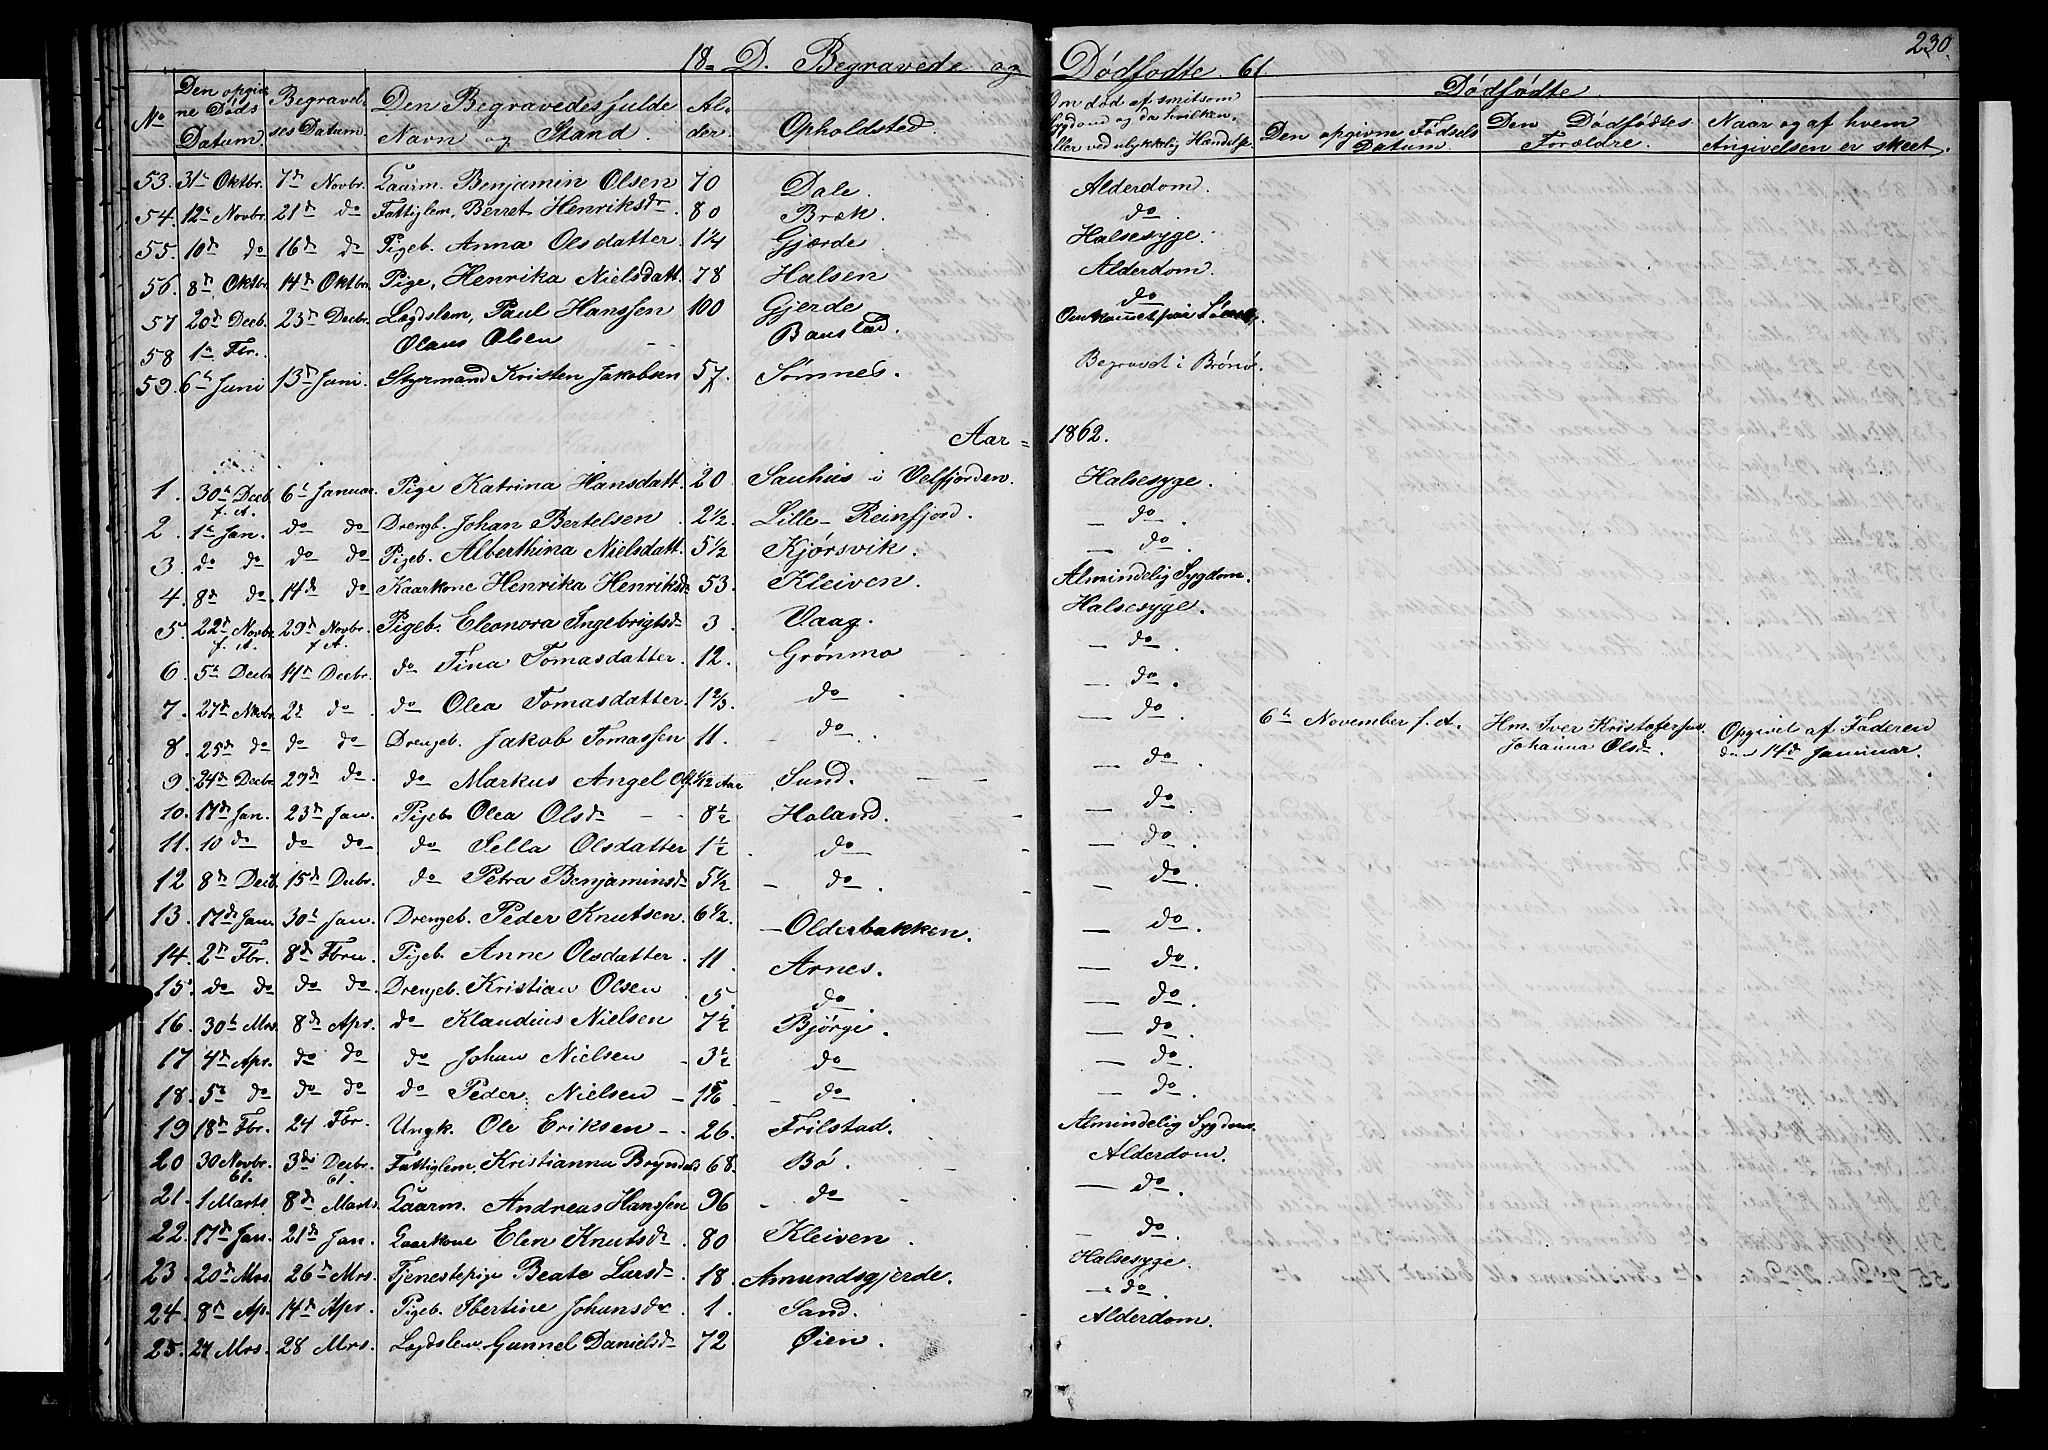 230.
18= D. Begravede og Dødfødte. 61.
No Den opgivne Døds Datum. Begravelses Datum. Den Begravedes fulde Navn og Stand. Alder. Opholdsted. Om død af smitsom Sygdom og da hvilken, eller ved ulykkelig Hændelse. Dødfødte.
Den opgivne Fødsels Datum. Den Dødfødtes Forældre. Naar og af hvem Angivelsen er skeet.
53. 31te Oktbr. 7de Novbr. Gaarm. Benjamin Olsen 70 Dale. Alderdom.
54. 12te Novbr. 21de do Fattiglem, Berret Henriksdr. 80 Bræk. do.
55. 10de do 16de do Pigeb. Anna Olsdatter 1¼ Gjærde Halsesyge.
56. 8de Oktbr. 14de Oktbr. Pige, Henrika Nielsdatt. 78 Halsen Alderdom.
57 20de Decb. 23de Decbr. Legdslem, Paul Hanssen 100 Gjerde do
58 1te Fbr. Olaus Olsen Baustad. Omkommet paa Søen.
59. 6te Juni 13de Juni. Styrmand Kristen Jakobsen 57. Sømnes. Begravet i Brønø.
Aar = 1862.
1. 30te Decb. f. A. 6te Januar. Pige Katrina Hansdatt. 20 Sauhus i Velfjorden. Halsesyge.
2. 1te Jan. do do Drengb. Johan Bertelsen. 2½. Lille-Reinfjord. — do.
3. do do do do Pigeb. Alberthina Nielsdatt. 5½ Kjørsvik. — do.
4. 8de do. 14de do Kaarkone Henrika Henriksdr 53. Kleiven. Almindelig Sygdom.
5. 22de Novbr. f. A. 29de Novbr. f. A. Pigeb. Eleonora Ingebrigtsdr 3. Vaag. Halsesyge.
6. 5te Decbr. 14de Decbr. do Tina Tomasdatter. 12. Grønmo — do.
7. 27de Novbr. 2de do. do Olea Tomasdatter. 1⅔ do — do.
8. 25de do do do Drengeb. Jakob Tomassen 11. do. — do. 6te November f. A. Hm. Iver Kristofersen Johanna Olsdr. Opgivet af Faderen den 14de Januar.
9. 24de Decbr. 29de do. do Markus Angel Ols. 1/12 Aar Sund. — do.
10. 17de Jan. 23de Jan. Pigeb. Olea Olsdr 8½ Holand. — do.
11. 10 do do do do Pella Olsdatter 1½. do — do.
12 8de Decb. 15de Decbr. do Petra Benjaminsdr 5½ do. — do.
13. 17de Jan. 30te Jan. Drengeb. Peder Knutsen. 6½. Olderbakken. — do.
14. 2den Fbr. 8de Fbru. Pigeb. Anne Olsdatter. 11. Arnes. — do.
15. do do do do. Drengeb. Kristian Olsen 5. do. — do.
16. 30te Mrs. 8de Apr. do Klaudius Nielsen 7½ Bjørge. — do.
17 4de Apr. do do do Johan Nielsen 3½ do — do.
18. 5te do do do do Peder Nielsen 1⅚ do. — do.
19 18de Fbr. 24 Fbr. Ungk. Ole Eriksen 26. Frilstad. Almindelig Sygdom.
20 30 Novbr. 61. 3de Decbr. 61. Fattiglem, Kristianna Bryndels 68. Bø. Alderdom.
21. 1 Marts 8de Marts. Gaarm. Andreas Hanssen 96 do — do.
22. 17de Jan. 21de Jan. Gaarkone Elen Knutsdr 80 Kleiven. do.
23. 20de Mrs. 26de Mrs. Tjenestepige Beate Larsdr 18. Amundsgjerde. Halsesyge.
24. 8de Ap. 14de Apr. Pigeb. Ibertine Johansdr 1. Sand. — do.
25. 24 Mrs. 28 Mrs. Legdslem Gunnel Danielsdr 72 Øien. Alderdom.